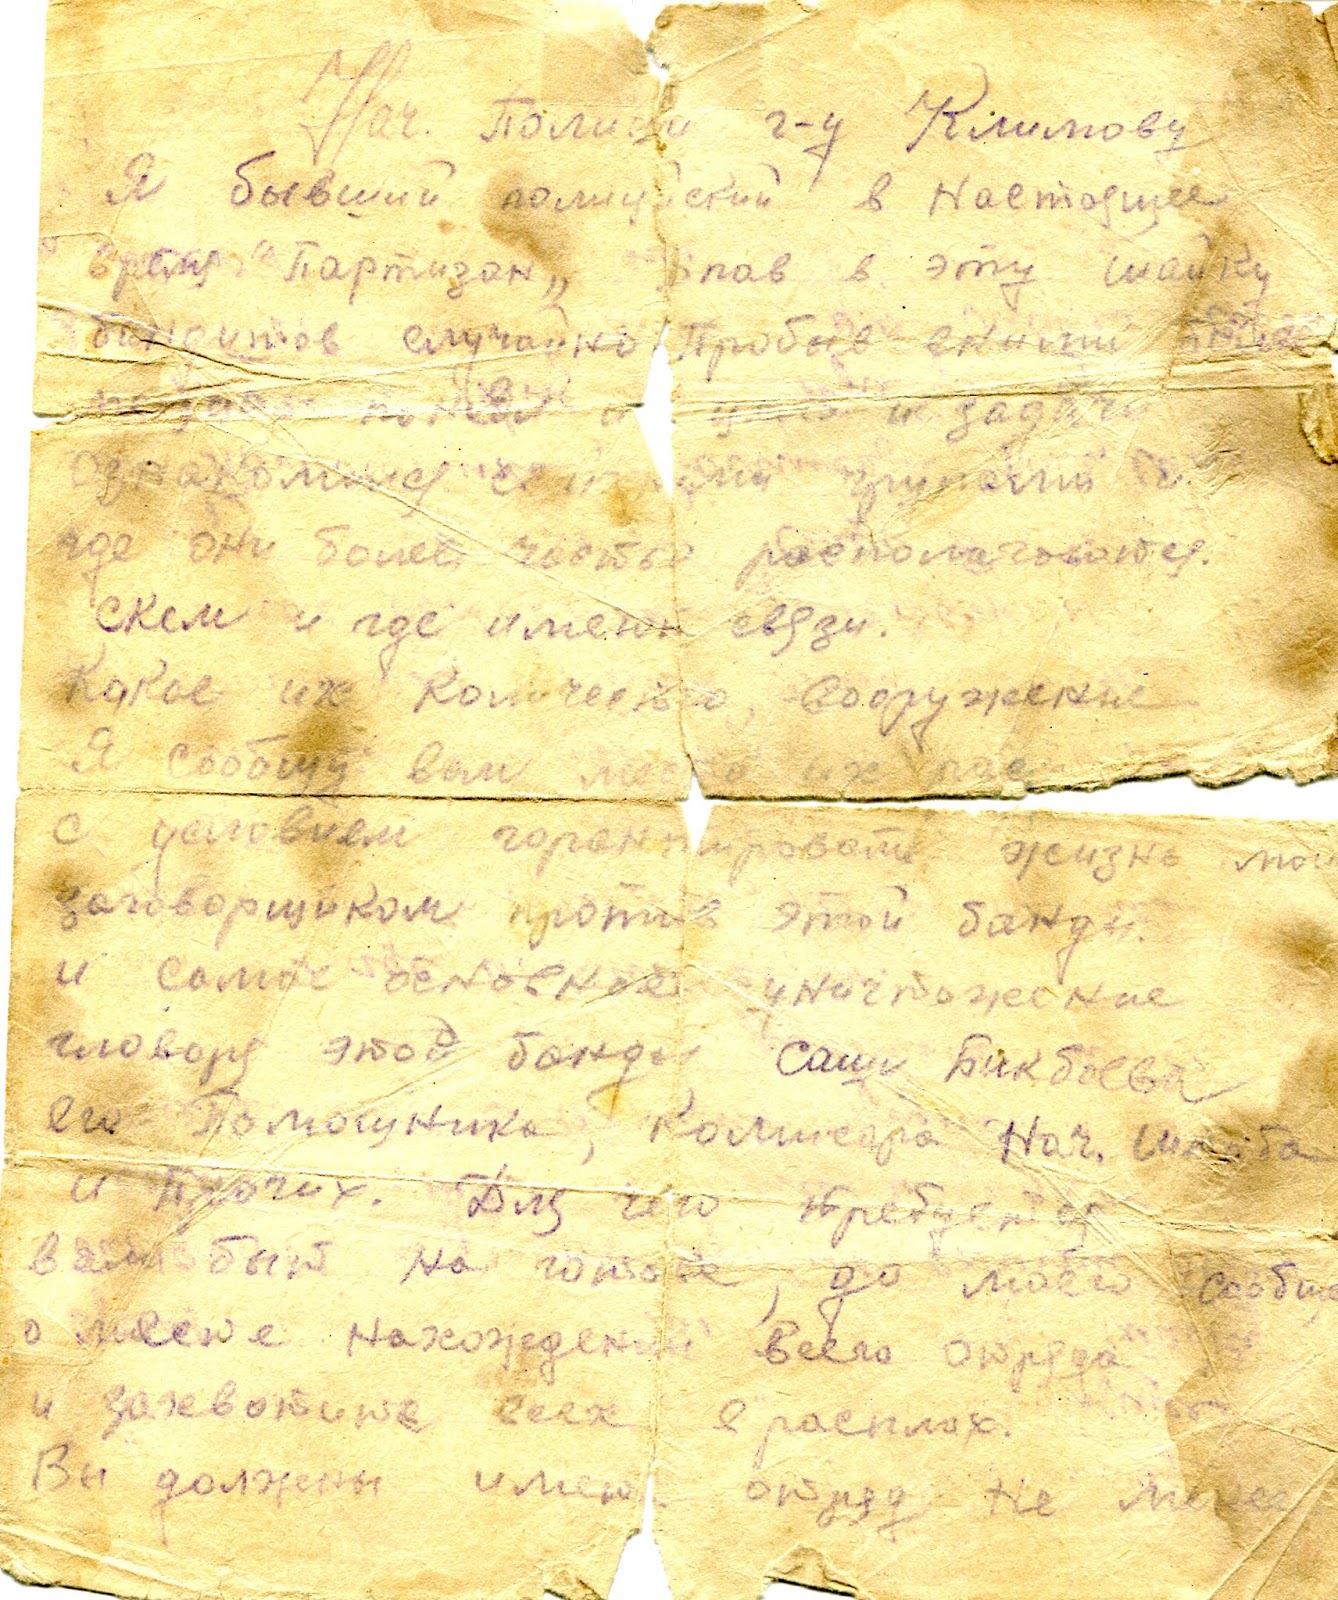 Нач. Полиции г-у Климову
Я бывший полицейский в настоящее
время "Партизан„ впав в эту шайку
бандитов случайно Пробыв сними
понял цель и задачи
ознакомился группами и
где они более часто располагоются.
Скем и где имеют связи.
Какое их количество, вооружение
Я сообщу вам место их
с условием горантировать жизнь мои
заговорщиком против этой банды.
и самое основное уничтожение
главоря этой банды Саши Бикбаева
его Помощника, Комисара Нач. Штаба
и Прочих. Для чего требуется
вам быт на готове, до моего сообще
о месте нахождений всего отряда
и захватите всех в расплох.
Вы должны иметь отряд не менее